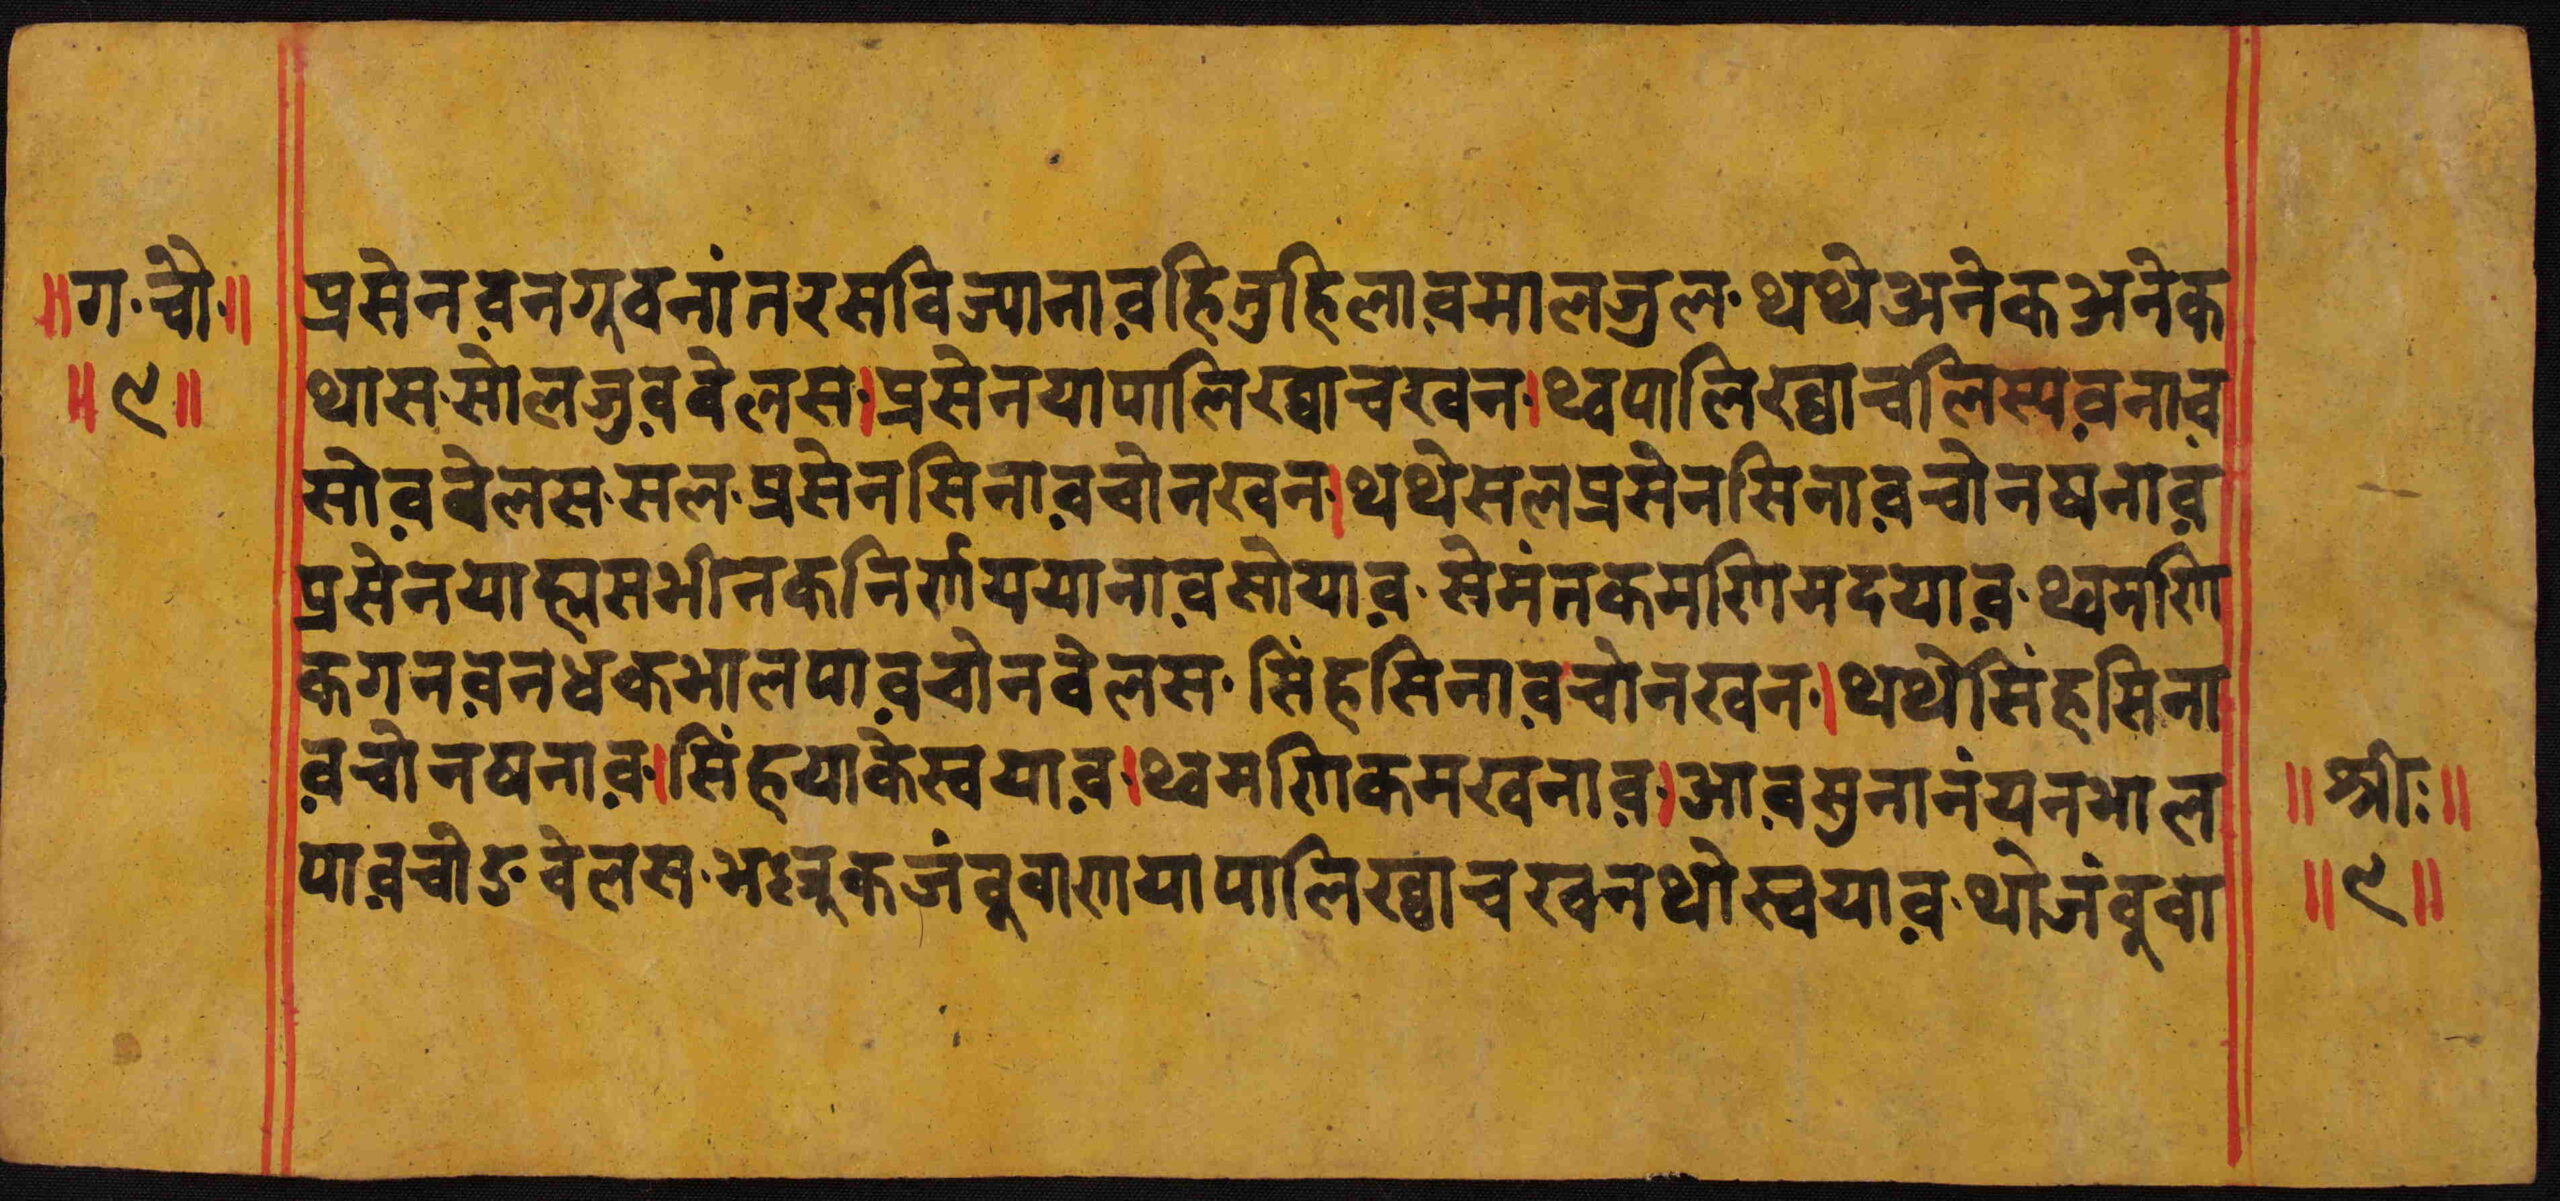 ॥ग·चौ·॥
॥९॥
प्रसेनव़नगूवनांतरसविज्यानाव़हितुहिलाव़मालजुल·थथेअनेकअनेक
थास·सोलजुव़वेलस·।प्रसेनयापालिख्वाचखन·।थ्वपालिख्वाचलिस्यव़नाव़
सोव़वेलस·सल·प्रसेनसिनाव़चोनखन·।थथेसलप्रसेनसिनाव़चोनषनाव़
प्रसेनयाह्मसभीनकनिर्णययानाव़सोयाव़·सेमंतकमणिमदयाव़·थ्वमणि
कगनव़नधकभालपाव़चोनवेलस·सिंहसिनाव़चोनखन·।थथेसिंहसिना
व़चोनषनाव़·।सिंहयाकेस्वयाव़·।थ्वमणिकमखनाव़·।आव़सुनानंयनभाल
पाव़चोङवेलस·भःजुकजंबुवाणयापालिख्वाचखनथोस्वयाव़·थोजंबुवा
॥श्रीः॥
॥९॥